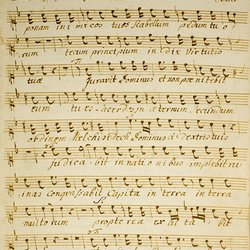 ponam inimicos tuos scabellum pedum tuo
rum tecum principium in die virtutis
tuæ juravit Dominus et non pœnitebit
eum tu es Sacerdos in æternum secundum
ordinem Melchisedech Dominus a Dextris tuis
judicabit in nationibus implebit ru
inas conquassabit Capita in terra in terra
multorum propterea exaltabit